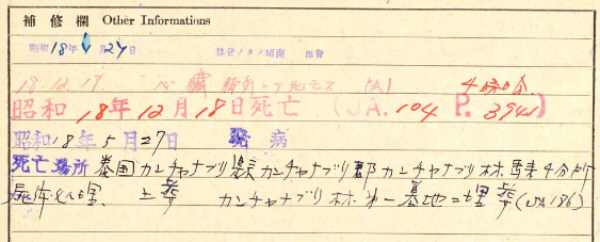 補修欄 Other Informations
昭和18年 月27日
18.12.18 心臓脚気ニテ死亡ス 4時0分
昭和18年12月18日死亡 (JA.104 P.3941)
昭和18年5月27日 発病
死亡場所 泰国カンチャナブリ県カンチャナブリ郡カンチャナブリ村 第4分所
屍体処理 土葬 カンチャナブリ村第一墓地ニ埋葬(JA186)